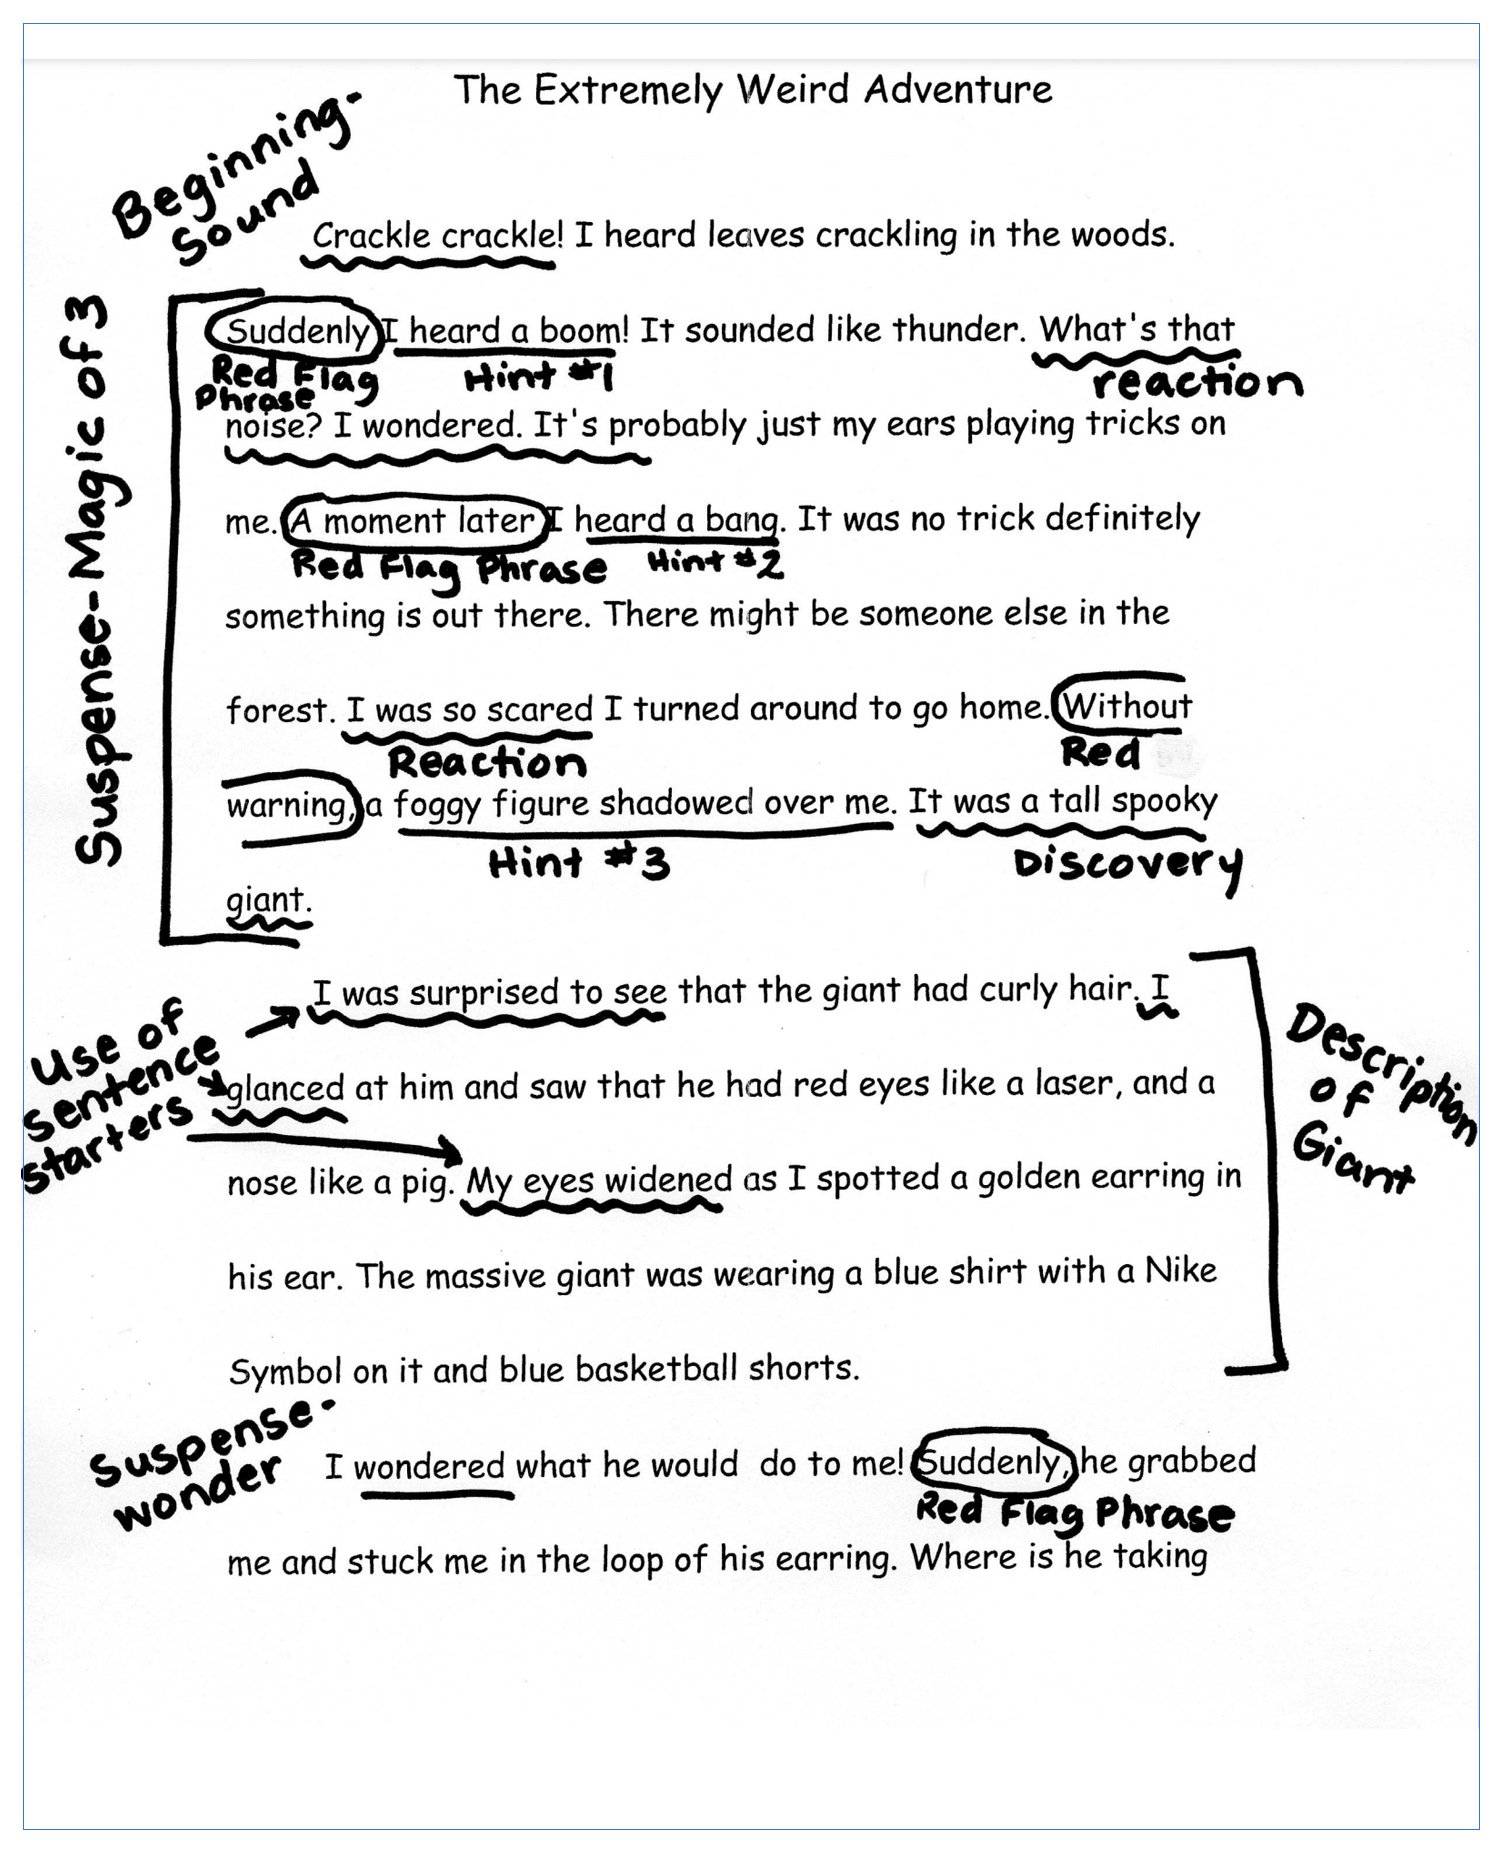 The Extremely Weird Adventure
Beginning-
Sound
Crackle crackle! I heard leaves crackling in the woods.
Suspense-Magic of 3
Suddenly I heard a boom! It sounded like thunder. What's that
Red Flag
Phrase
Hint #1
reaction
noise? I wondered. It's probably just my ears playing tricks on
me. A moment later I heard a bang. It was no trick definitely
Red Flag Phrase
Hint #2
something is out there. There might be someone else in the
forest. I was so scared I turned around to go home. Without
Reaction
Red
warning, a foggy figure shadowed over me. It was a tall spooky
Hint #3
Discovery
giant.
I was surprised to see that the giant had curly hair. I
Use of
sentence
starters
Description
of
Giant
glanced at him and saw that he had red eyes like a laser, and a
nose like a pig. My eyes widened as I spotted a golden earring in
his ear. The massive giant was wearing a blue shirt with a Nike
Symbol on it and blue basketball shorts.
Suspense-
wonder
I wondered what he would do to me! Suddenly, he grabbed
Red Flag Phrase
me and stuck me in the loop of his earring. Where is he taking